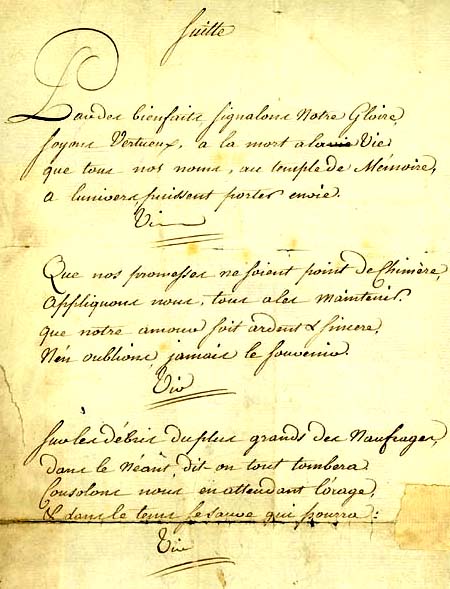 Suitte
Par des bienfaits signalons Notre Gloire,
soyons Vertueux, a la mort a la vie Vie
que tous nos noms, au temple de Mémoire,
a lunivers puissent porter envie.
Viv
Que nos promesses ne soient point de Chimère,
Appliquons nous, tous a les maintenir
que notre amour soit ardent & sincere,
N'en oublions jamais le souvenir.
Viv
sur les débris du plus grands des Naufrages,
dans le Néant, dit on tout tombera
Consolons nous en attendant l'orage,
& dans le tems se sauve qui pourra :
Viv